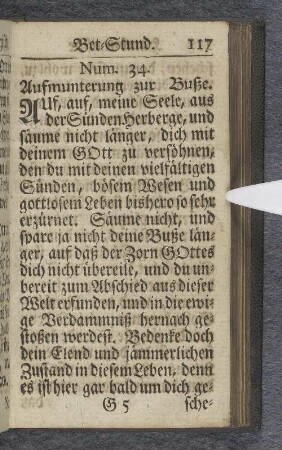 Bet-Stund. 117
Num. 34.
Aufmunterung zur Buße.
AUf, auf, meine Seele, aus
der Sünden Herberge, und
säume nicht länger, dich mit
deinem GOtt zu versöhnen,
den du mit deinen vielfältigen
Sünden, bösem Wesen und
gottlosem Leben bishero so sehr
erzürnet. Säume nicht, und
spare ja nicht deine Buße län-
ger, auf daß der Zorn GOttes
dich nicht übereile, und du un-
bereit zum Abschied aus dieser
Welt erfunden, und in die ewi-
ge Verdammniß hernach ge-
stoßen werdest. Bedenke doch
dein Elend und jämmerlichen
Zustand in diesem Leben, denn
es ist hier gar bald um dich ge-
G 5 sche-